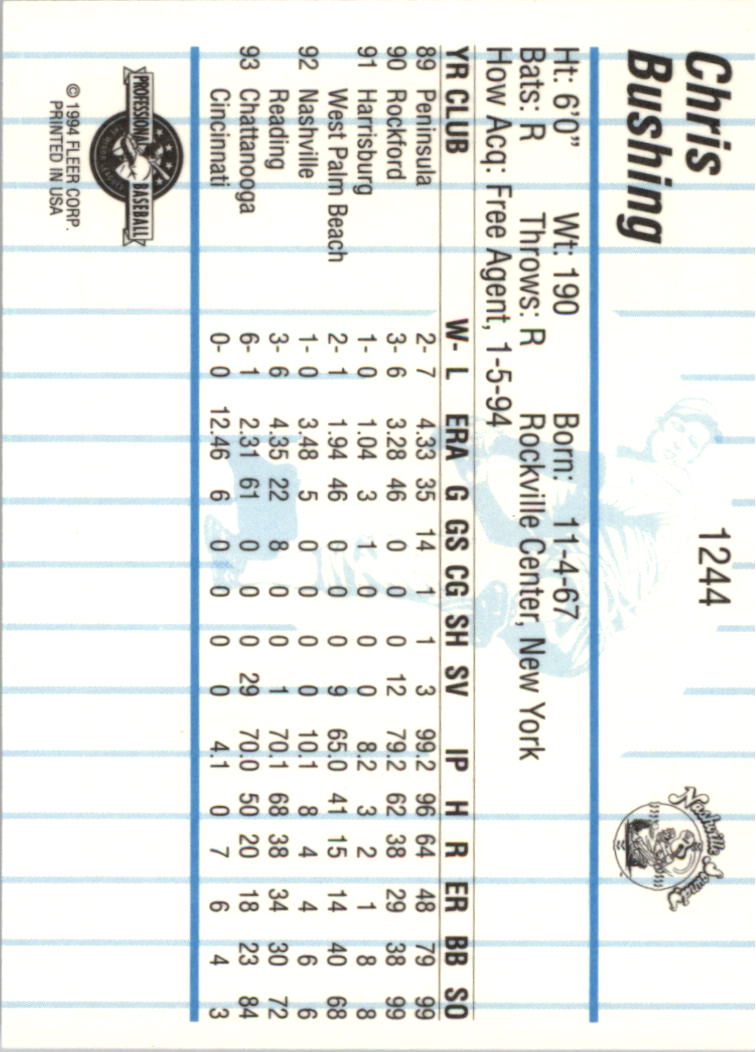 Chris
Bushing
1244
Nashville Sounds
Ht: 6'0" Wt: 190 Born: 11-4-67
Bats: R Throws: R Rockville Center, New York
How Acq: Free Agent, 1-5-94
YR CLUB W- L ERA G GS CG SH SV IP H R ER BB SO
89 Peninsula 2- 7 4.33 35 14 1 1 3 99.2 96 64 48 79 99
90 Rockford 3- 6 3.28 46 0 0 0 12 79.2 62 38 29 38 99
91 Harrisburg 1- 0 1.04 3 1 0 0 0 8.2 3 2 1 8 8
West Palm Beach 2- 1 1.94 46 0 0 0 9 65.0 41 15 14 40 68
92 Nashville 1- 0 3.48 5 0 0 0 0 10.1 8 4 4 6 6
Reading 3- 6 4.35 22 8 0 0 1 70.1 68 38 34 30 72
93 Chattanooga 6- 1 2.31 61 0 0 0 29 70.0 50 20 18 23 84
Cincinnati 0- 0 12.46 6 0 0 0 0 4.1 0 7 6 4 3
PROFESSIONAL BASEBALL
© 1994 FLEER CORP.
PRINTED IN USA